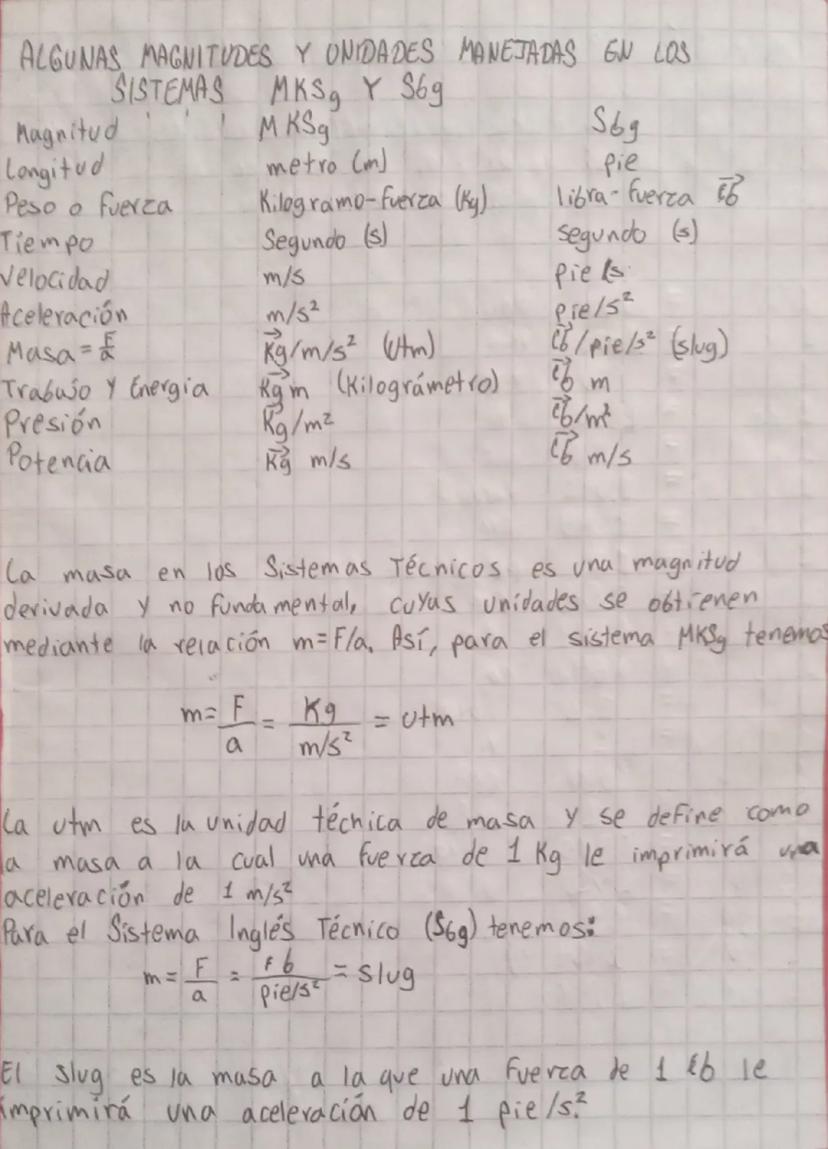 ALGUNAS MAGNITUDES Y UNIDADES MANEJADAS EN LOS
SISTEMAS MKSg Y S6g
Magnitud MKSg S6g
Longitud metro (m) pie
Peso o fuerza Kilogramo-fuerza (Kg) libra-fuerza ℓb
Tiempo Segundo (s) segundo (s)
Velocidad m/s pie/s
Aceleración m/s² pie/s²
Masa = F/a Kg/m/s² (Utm) ℓb/pie/s² (slug)
Trabajo Y Energia Kgm (Kilográmetro) ℓb m
Presión Kg/m² ℓb/m²
Potencia Kg m/s ℓb m/s
La masa en los Sistemas Técnicos es una magnitud
derivada y no fundamental, cuyas unidades se obtienen
mediante la relación m=F/a. Así, para el sistema MKSg tenemos
m= F/a = Kg/m/s² = Utm
La utm es la unidad técnica de masa y se define como
la masa a la cual una fuerza de 1 Kg le imprimirá una
aceleración de 1 m/s²
Para el Sistema Inglés Técnico (S6g) tenemos:
m= F/a = ℓb/pie/s² = slug
El slug es la masa a la que una fuerza de 1 ℓb le
imprimirá una aceleración de 1 pie/s².